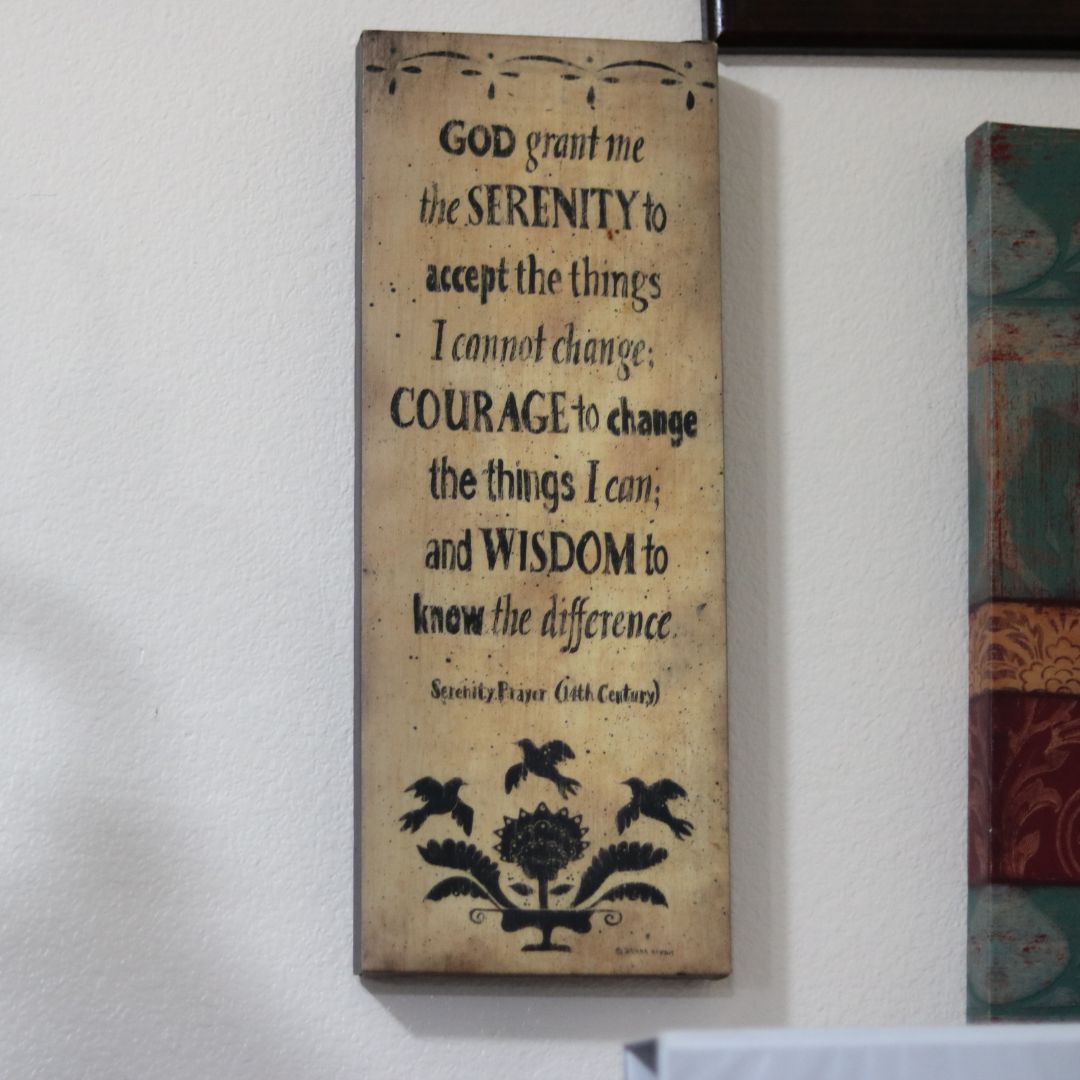 GOD grant me
the SERENITY to
accept the things
I cannot change;
COURAGE to change
the things I can;
and WISDOM to
know the difference.
Serenity Prayer (14th Century)